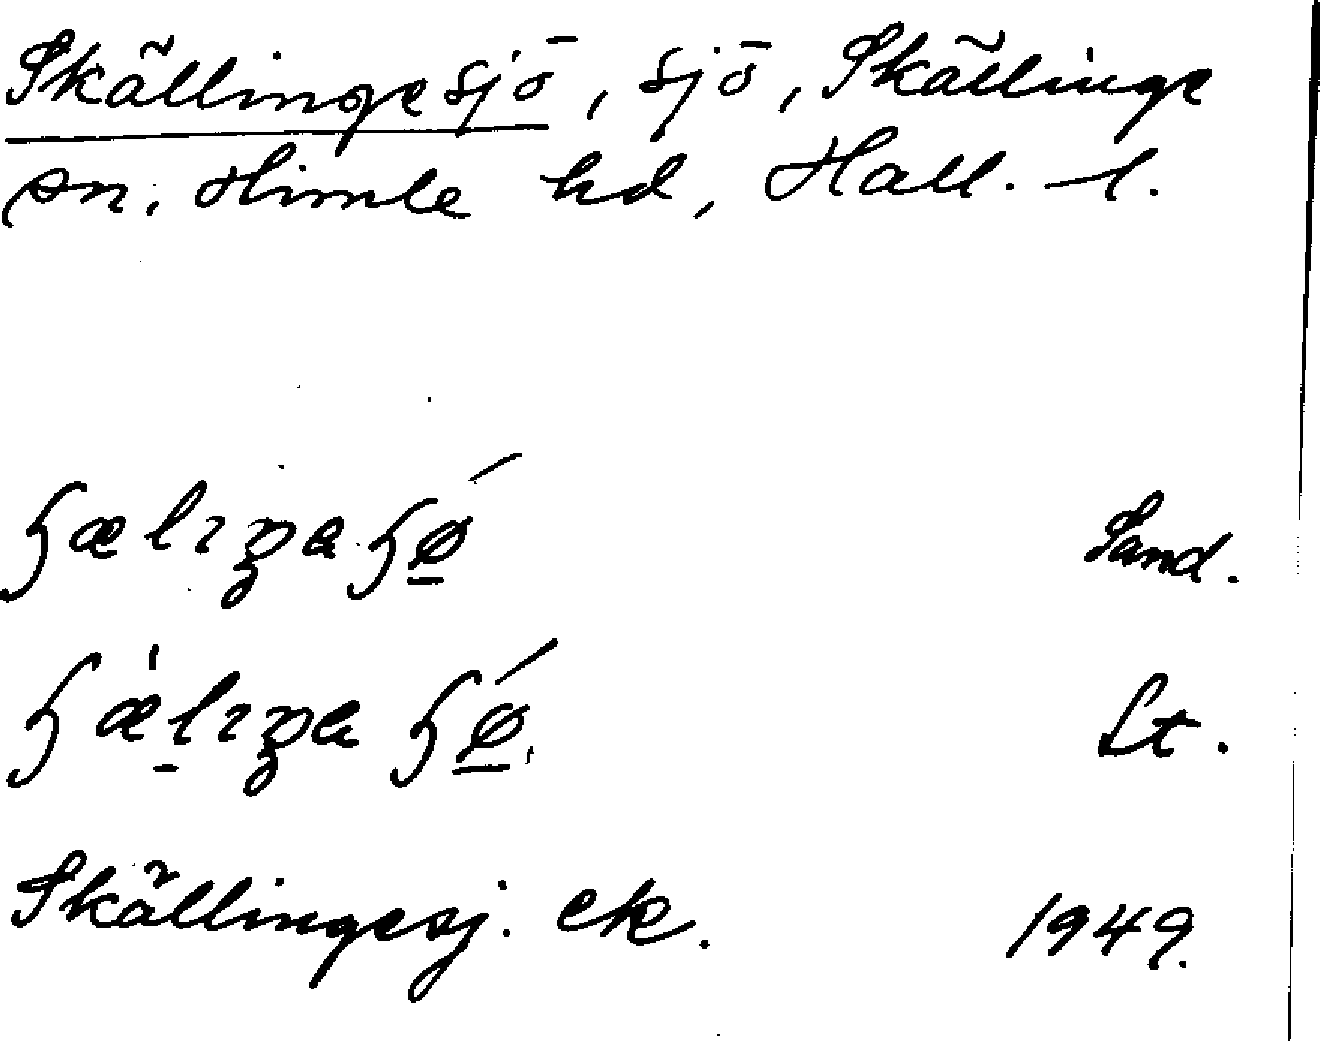 Skällingesjö, sjö, Skällinge
sn. Himle hd, Hall. l.
Sand.
Lt.
Skällingesj. ek. 1949.